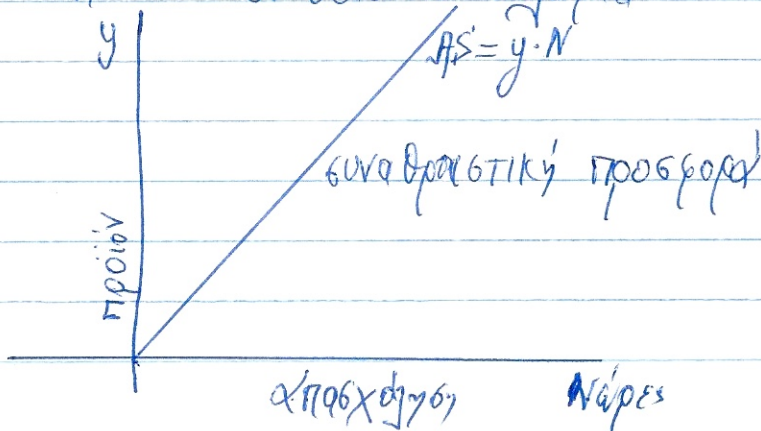 y
AS = ȳ · N
συναθροιστική προσφορά
προϊόν
απασχόληση
Νώρες